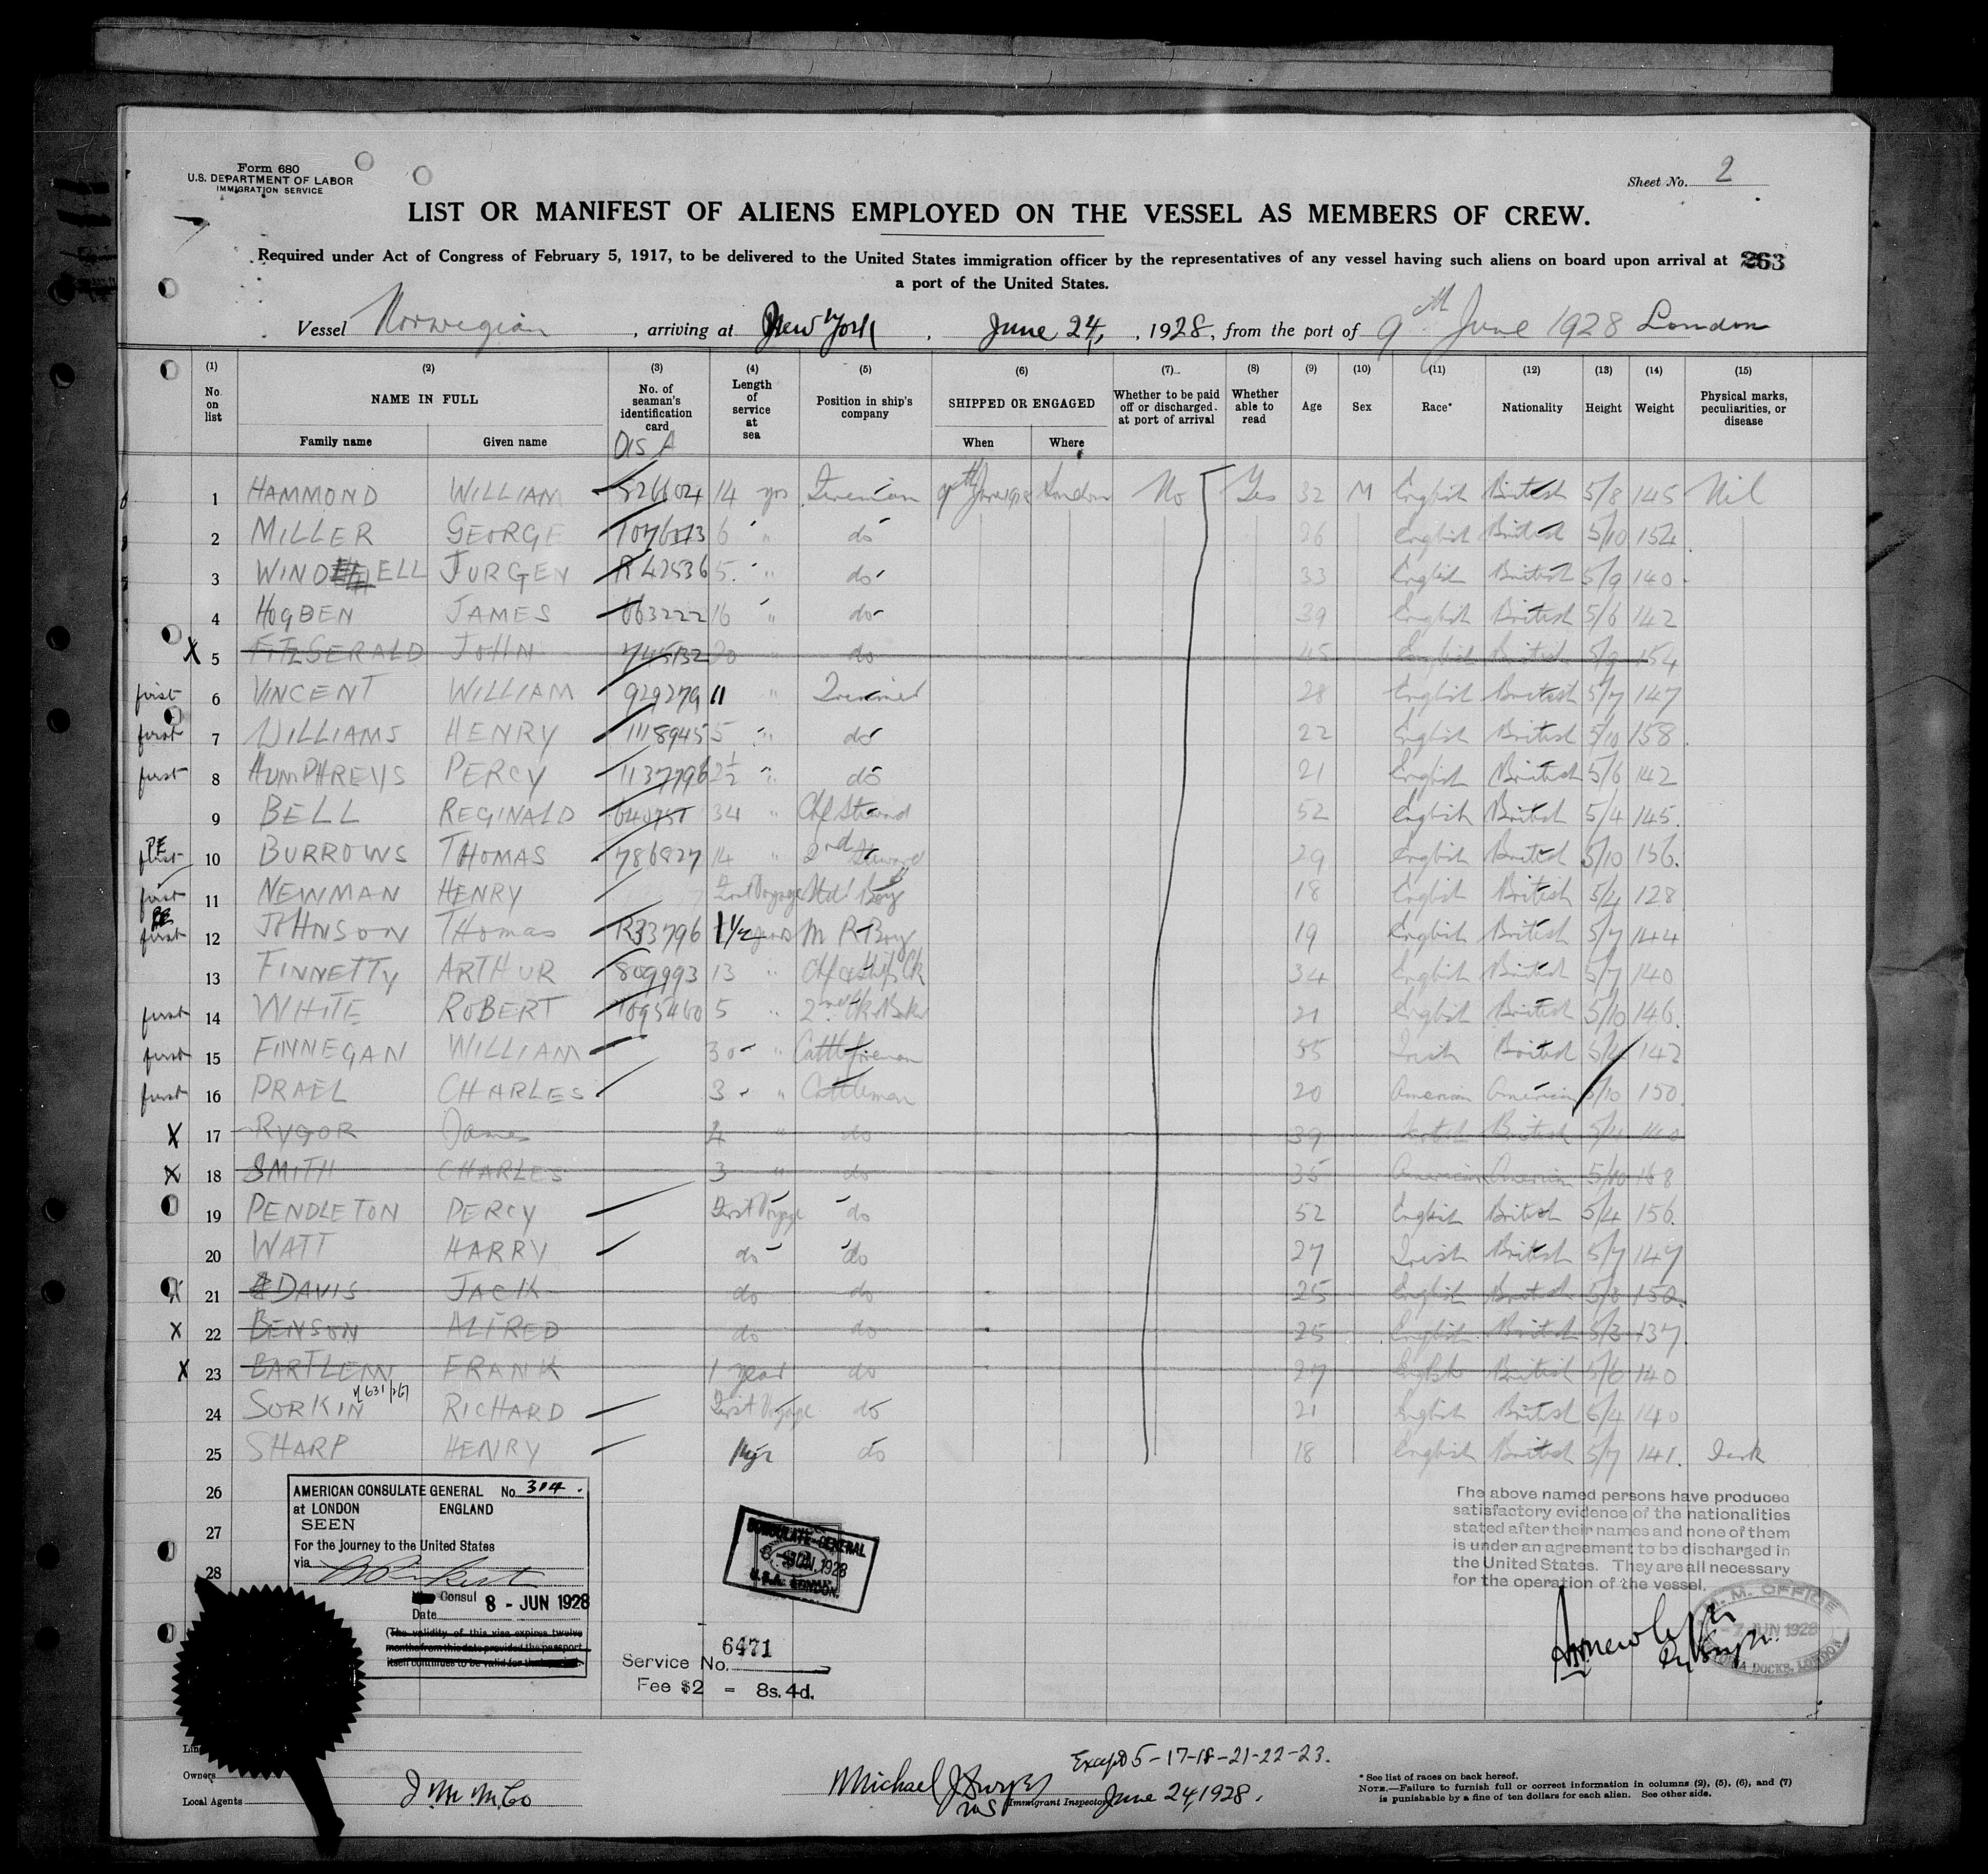 Form 680
U.S. DEPARTMENT OF LABOR
IMMIGRATION SERVICE
Sheet No. 2
LIST OR MANIFEST OF ALIENS EMPLOYED ON THE VESSEL AS MEMBERS OF CREW.
Required under Act of Congress of February 5, 1917, to be delivered to the United States immigration officer by the representatives of any vessel having such aliens on board upon arrival at
a port of the United States.
263
Vessel Norwegian, arriving at New York, June 24, 1928, from the port of 9th June 1928 London
(1) (2) (3) (4) (5) (6) (7) (8) (9) (10) (11) (12) (13) (14) (15)
No. on list NAME IN FULL Family name Given name No. of seaman's identification card Dis A Length of service at sea Position in ship's company SHIPPED OR ENGAGED When Where Whether to be paid off or discharged at port of arrival Whether able to read Age Sex Race* Nationality Height Weight Physical marks, peculiarities, or disease
1 HAMMOND WILLIAM 826604 14 yrs Fireman 9th June 1928 London No Yes 32 M English British 5/8 145 Nil
2 MILLER GEORGE 1076073 6 " do 26 English British 5/10 154
3 WINDELL JURGEN R 42536 5 " do 33 English British 5/9 140
4 HOGBEN JAMES 663222 16 " do 39 English British 5/6 142
X 5 FITZGERALD JOHN 745132 20 " do 45 English British 5/9 154
first 6 VINCENT WILLIAM 929279 11 " 28 English British 5/7 147
first 7 WILLIAMS HENRY 1118945 5 " do 22 English British 5/10 158
first 8 HUMPHREYS PERCY 1137796 2½ " do 21 English British 5/6 142
9 BELL REGINALD 34 " Chf Steward 52 English British 5/4 145
first 10 BURROWS THOMAS 786827 14 " 2nd Steward 29 English British 5/10 156
first 11 NEWMAN HENRY First Voyage Boy 18 English British 5/4 128
first 12 JOHNSON THOMAS R33796 1½ years M R Boy 19 English British 5/7 144
13 FINNETTY ARTHUR 809993 13 " Chf & Ships Ck 34 English British 5/7 140
first 14 WHITE ROBERT 1095460 5 " 2nd Ck & Baker 21 English British 5/10 146
first 15 FINNEGAN WILLIAM 30 " Cattleforeman 55 Irish British 5/4 142
first 16 PRAEL CHARLES 3 " Cattleman 20 American American 5/10 150
X 17 RYGOR James 4 " do 39 Scotch British 5/4 140
X 18 SMITH CHARLES 3 " do 35 American American 5/10 168
19 PENDLETON PERCY First Voyage do 52 English British 5/4 156
20 WATT HARRY do do 27 Irish British 5/7 147
X 21 DAVIS JACK do do 25 English British 5/8 150
X 22 BENSON ALFRED do do 25 English British 5/3 137
X 23 BARTLEM FRANK 1 year do 27 English British 5/6 140
24 SORKIN RICHARD First Voyage do 21 English British 5/4 140
25 SHARP HENRY do 18 English British 5/7 141
26
27
28
AMERICAN CONSULATE GENERAL No. 314.
at LONDON ENGLAND
SEEN
For the journey to the United States
via
Consul
Date 8 - JUN 1928
(The validity of this visa expires twelve
months from this date provided the passport
itself continues to be valid for that period.)
CONSULATE-GENERAL
JUN. 1928
U.S.A. LONDON.
Service No. 6471
Fee $2 = 8s. 4d.
The above named persons have produced
satisfactory evidence of the nationalities
stated after their names and none of them
is under an agreement to be discharged in
the United States. They are all necessary
for the operation of the vessel.
M. M. OFFICE
-7 JUN 1928
DOCKS, LONDON
Owners
Local Agents J M M Co
Except 5-17-18-21-22-23.
Michael J.
Immigrant Inspector June 24, 1928.
* See list of races on back hereof.
NOTE.—Failure to furnish full or correct information in columns (2), (5), (6), and (7)
is punishable by a fine of ten dollars for each alien. See other side.